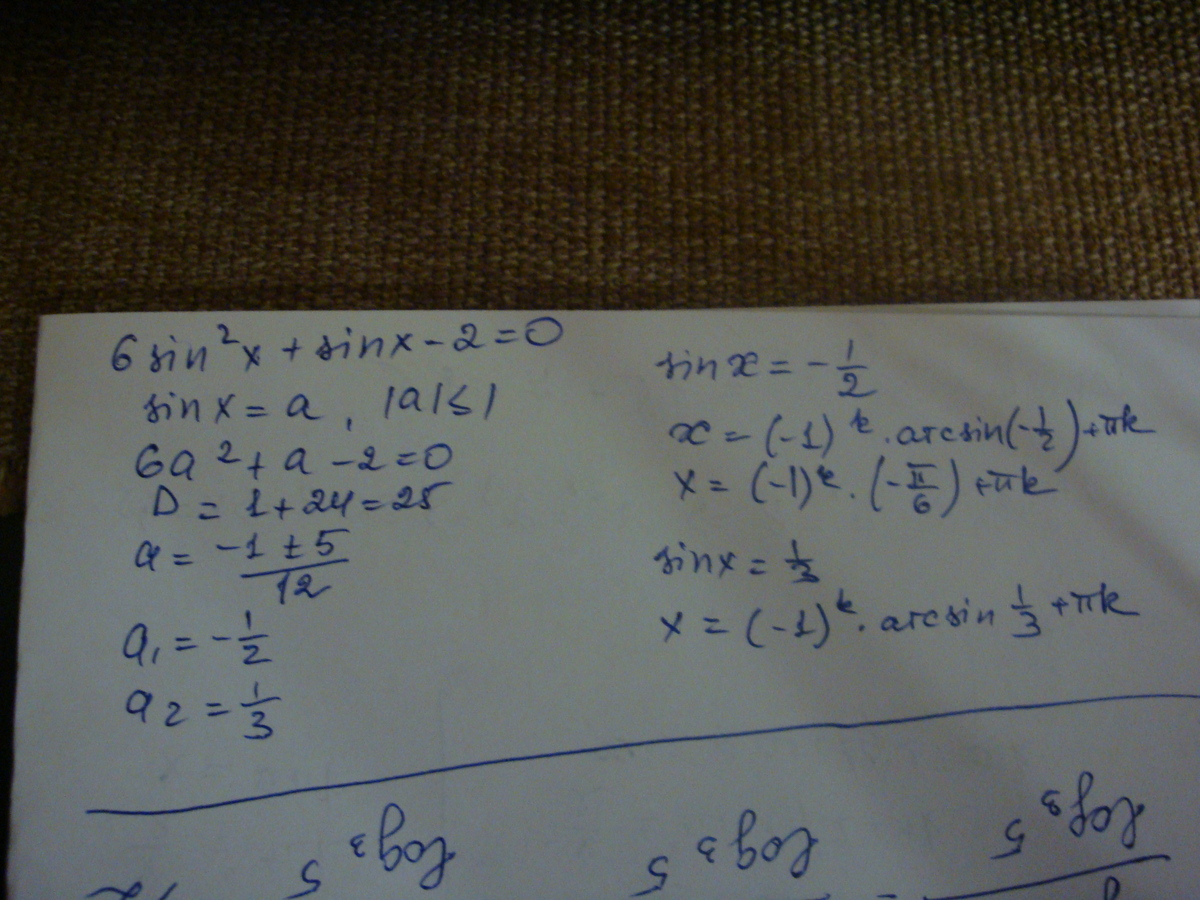 6 sin²x + sinx - 2 = 0
sin x = a, |a| ≤ 1
6a² + a - 2 = 0
D = 1 + 24 = 25
a = (-1 ± 5)/12
a₁ = -1/2
a₂ = 1/3
sin x = -1/2
x = (-1)ᵏ · arcsin(-1/2) + πk
x = (-1)ᵏ · (-π/6) + πk
sin x = 1/3
x = (-1)ᵏ · arcsin 1/3 + πk
log₃ 5
log₃ 5
log₃ 5